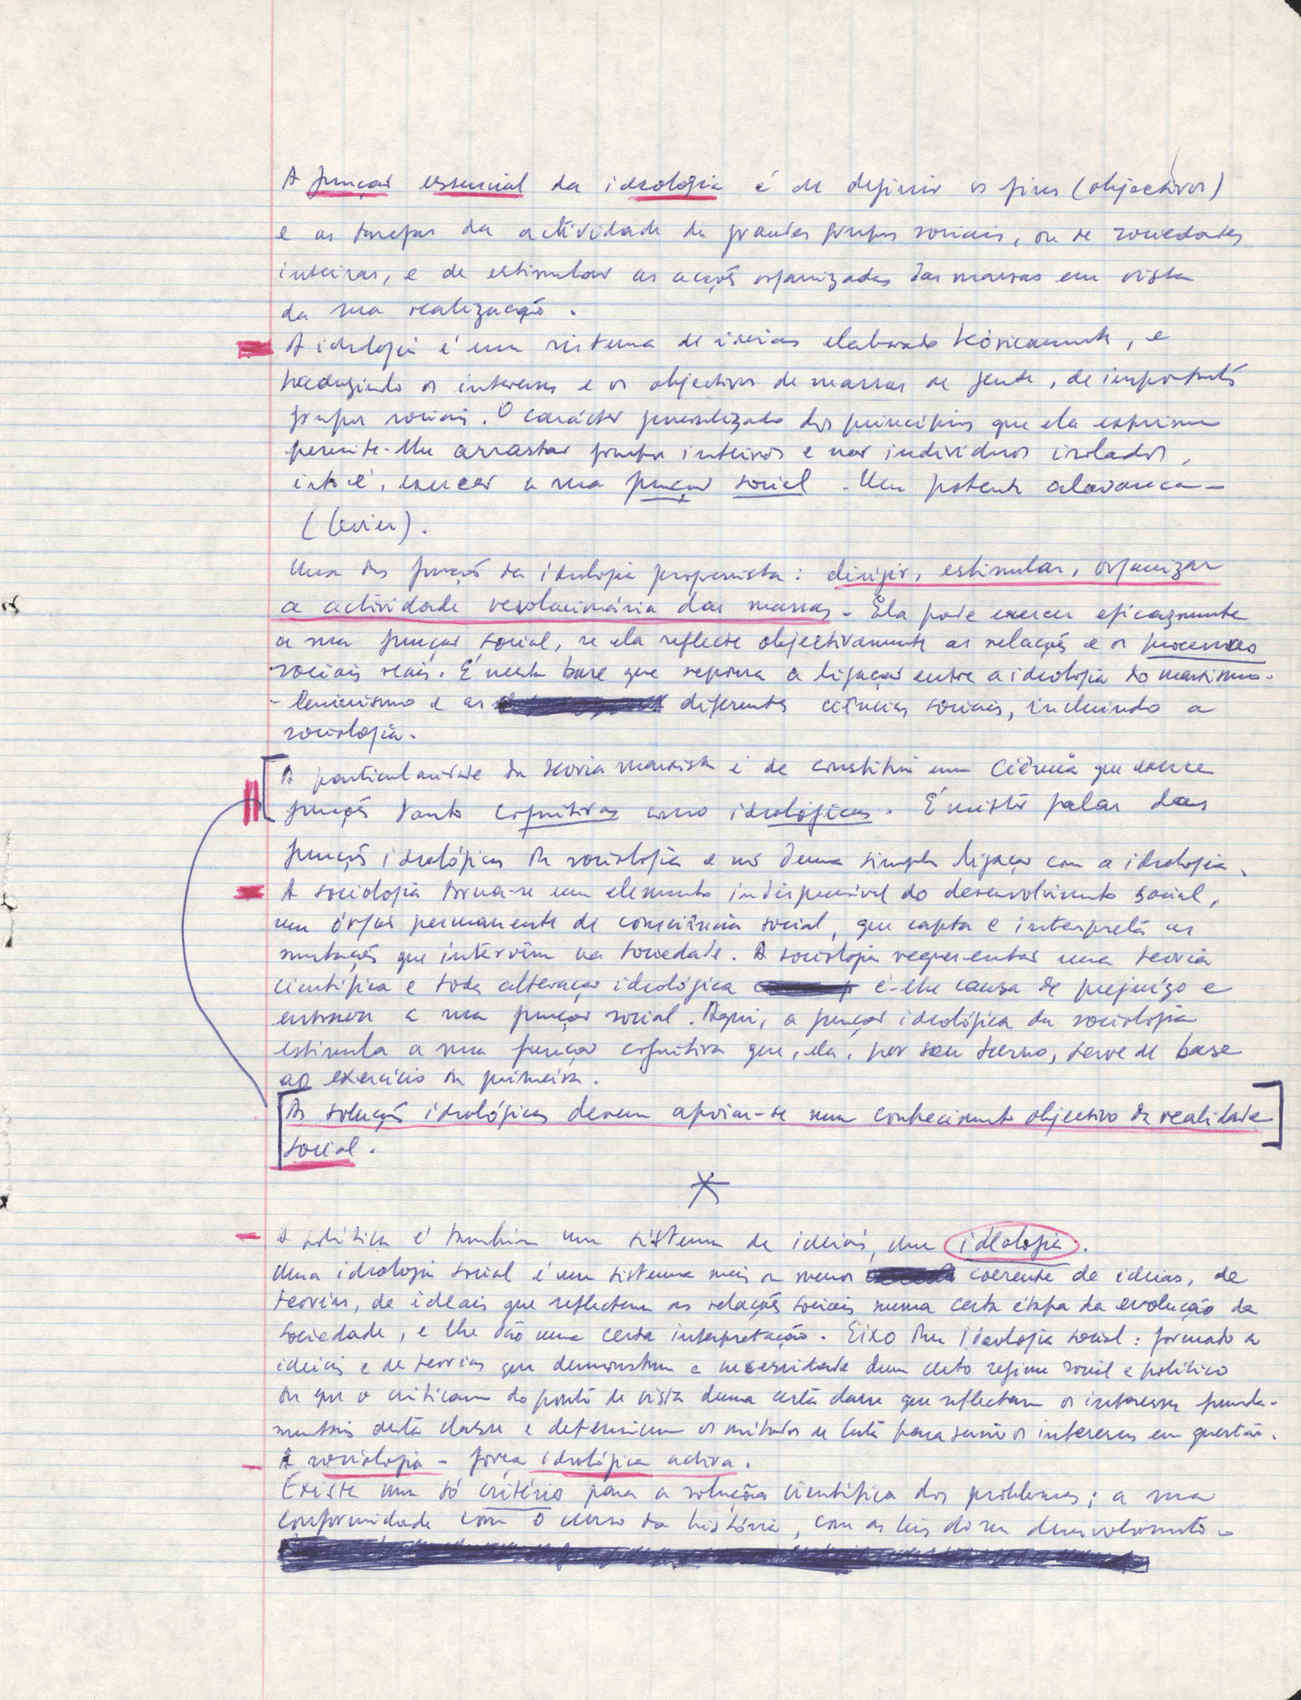 A função essencial da ideologia é de definir os fins (objectivos)
e as tarefas da actividade de grandes grupos sociais, ou de sociedades
inteiras, e de estimular as acções organizadas das massas em vista
da sua realização.
A ideologia é um sistema de ideias elaborado teòricamente, e
traduzindo os interesses e os objectivos de massas de gente, de importantes
grupos sociais. O carácter generalizado dos princípios que ela exprime
permite-lhe arrastar grupos inteiros e não indivíduos isolados,
isto é, exercer a sua função social. Um potente alavanca—
(levier).
Uma das funções da ideologia progressista: dirigir, estimular, organizar
a actividade revolucionária das massas. Ela pode exercer eficazmente
a sua função social, se ela reflecte objectivamente as relações e os processos
sociais reais. É nesta base que repousa a ligação entre a ideologia do marxismo-
-leninismo e as diferentes ciências sociais, incluindo a
sociologia.
A particularidade da teoria marxista é de constituir uma ciência que exerce
funções tanto cognitivas como ideológicas. É mister falar das
funções ideológicas da sociologia e não duma simples ligação com a ideologia.
A sociologia torna-se um elemento indispensável do desenvolvimento social,
um órgão permanente de consciência social, que capta e interpreta as
mutações que intervêm na sociedade. A sociologia representa uma teoria
científica e toda alteração ideológica é-lhe causa de prejuízo e
a sua função social. Aqui, a função ideológica da sociologia
estimula a sua função cognitiva que, ela, por seu turno, serve de base
ao exercício da primeira.
As soluções ideológicas devem apoiar-se num conhecimento objectivo da realidade
social.
A política é também um sistema de ideias, uma ideologia.
Uma ideologia social é um sistema mais ou menos coerente de ideias, de
teorias, de ideais que reflectem as relações sociais numa certa etapa da evolução da
sociedade, e lhe dão uma certa interpretação. Eixo duma ideologia social: formado de
ideias e de teorias que demonstram a necessidade dum certo regime social e político
ou que o criticam do ponto de vista duma certa classe que reflectem os interesses funda-
mentais desta classe e determinam os métodos de luta para servir os interesses em questão.
A sociologia — força ideológica activa.
Existe um só critério para a solução científica dos problemas; a sua
conformidade com o curso da história, com as leis do seu desenvolvimento.